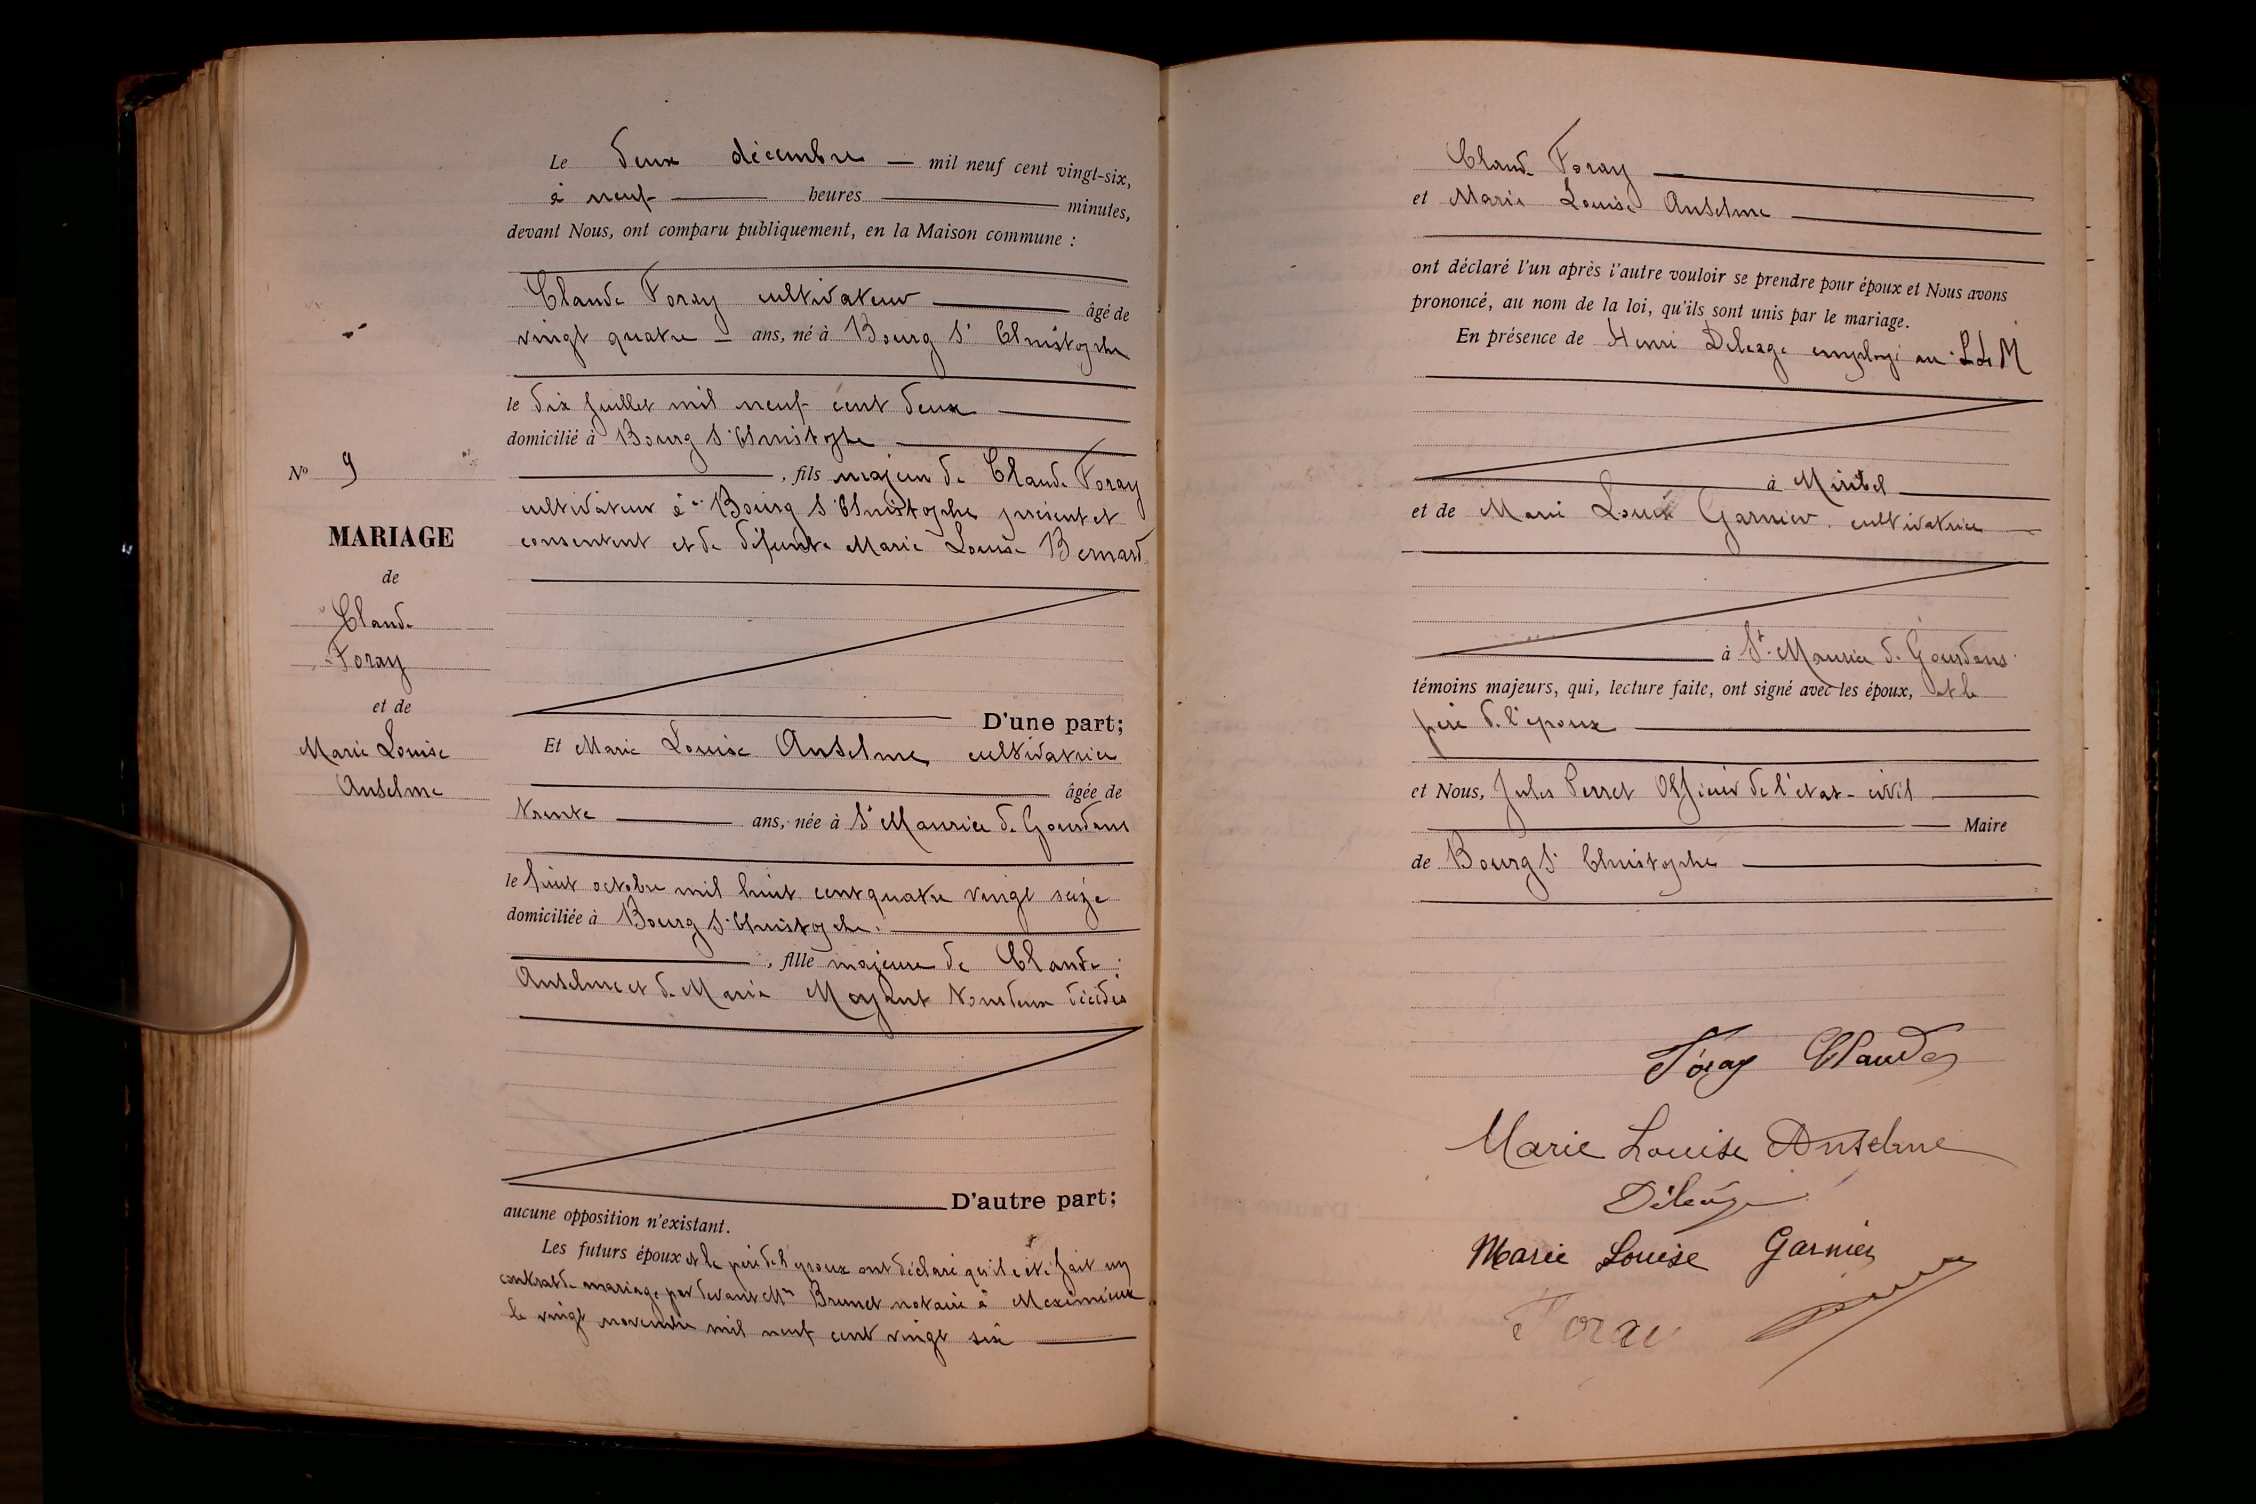 Le deux décembre — mil neuf cent vingt-six,
à neuf — heures — minutes,
devant Nous, ont comparu publiquement, en la Maison commune :
Claude Foray cultivateur — âgé de
vingt quatre — ans, né à Bourg St Christophe
le dix juillet mil neuf cent deux
domicilié à Bourg St Christophe
, fils majeur de Claude Foray
cultivateur à Bourg St Christophe présent et
consentent et de défunte Marie Louise Bernard
D'une part;
Et Marie Louise Anselme cultivatrice
âgée de
trente — ans, née à St Maurice de Gourdans
le huit octobre mil huit cent quatre vingt seize
domiciliée à Bourg St Christophe.
, fille majeure de Claude
Anselme et de Marie tous deux décédés
D'autre part;
aucune opposition n'existant.
Les futurs époux et le père de l'époux ont déclaré qu'il a été fait un
contrat de mariage par devant Me Brunet notaire à Meximieux
le vingt novembre mil neuf cent vingt six
No 9
MARIAGE
de
Claude
Foray
et de
Marie Louise
Anselme
Claude Foray
et Marie Louise Anselme
ont déclaré l'un après l'autre vouloir se prendre pour époux et Nous avons
prononcé, au nom de la loi, qu'ils sont unis par le mariage.
En présence de Henri Deleage employé au P.L.M
à Miribel
et de Marie Louise Garnier cultivatrice
à St Maurice de Gourdans
témoins majeurs, qui, lecture faite, ont signé avec les époux, et le
père de l'époux
et Nous, Jules Perret Officier de l'état-civil
Maire
de Bourg St Christophe
Foray Claude
Marie Louise Anselme
Déléage
Marie Louise Garnier
Foray